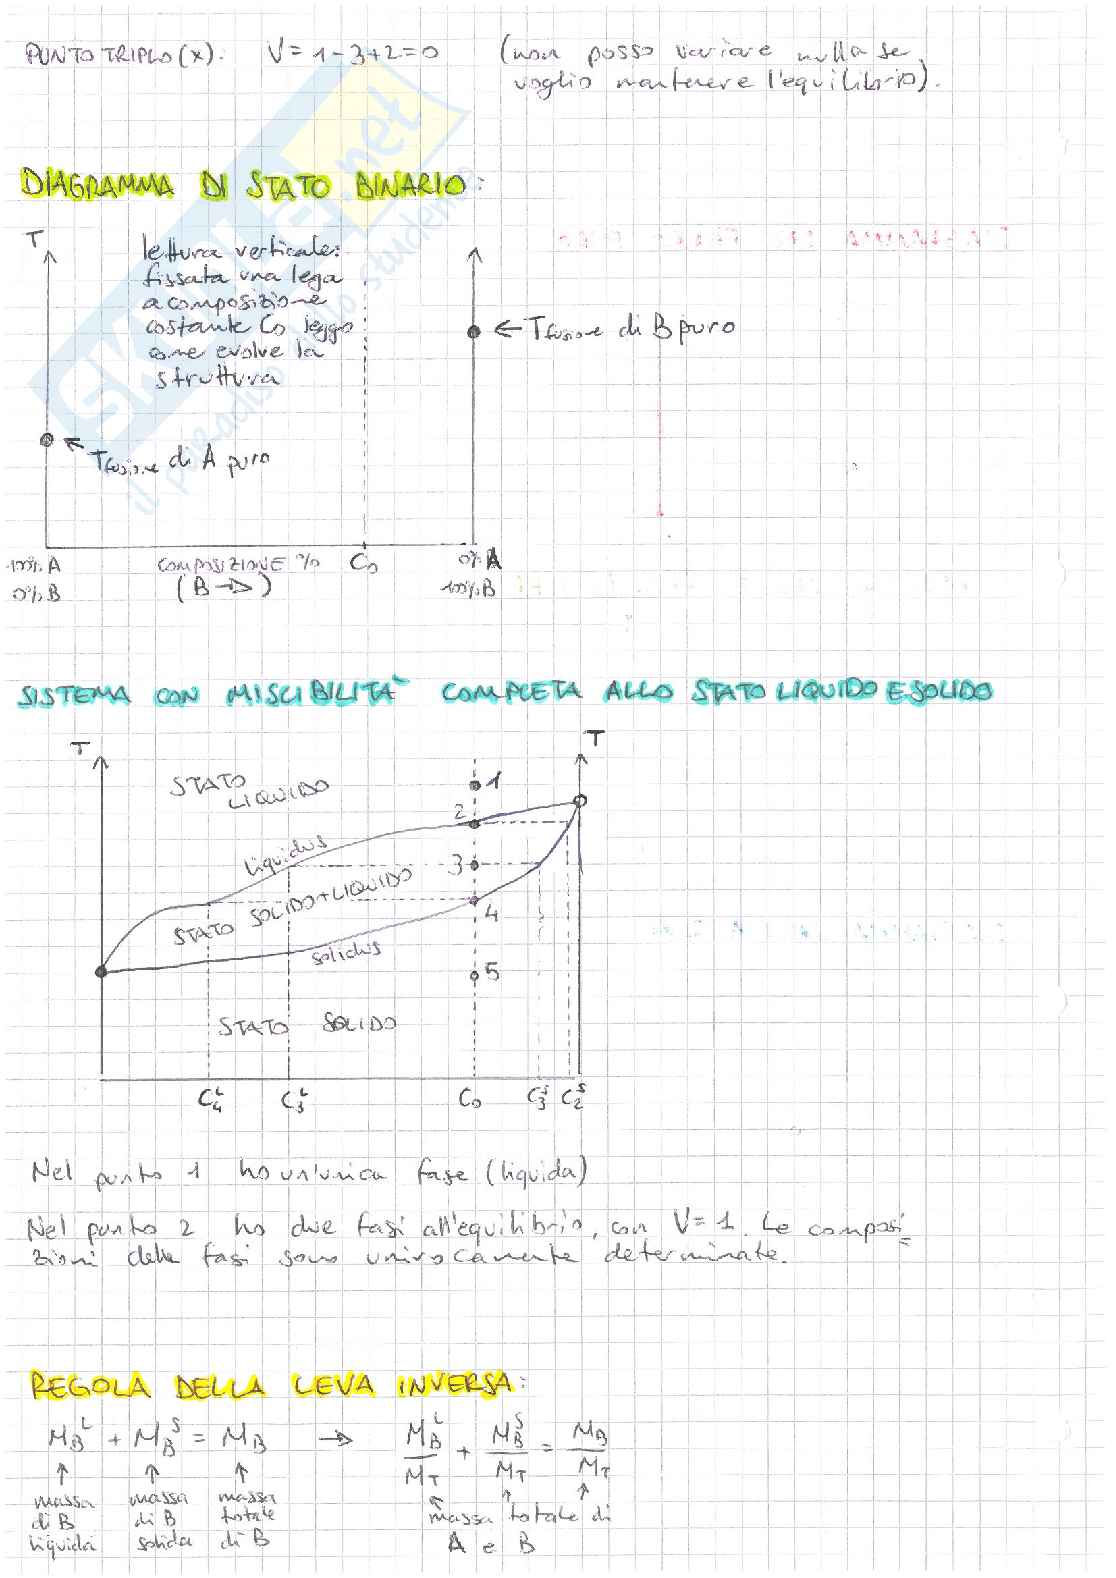 PUNTO TRIPLO (x): V = 1 - 3 + 2 = 0 (non posso variare nulla se
voglio mantenere l'equilibrio).
DIAGRAMMA DI STATO BINARIO:
T
lettura verticale:
fissata una lega
a composizione
costante C₀ leggo
come evolve la
struttura
← Tfusione di B puro
← Tfusione di A puro
100% A
0% B
COMPOSIZIONE %
(B →)
C₀
0% A
100% B
SISTEMA CON MISCIBILITÀ COMPLETA ALLO STATO LIQUIDO E SOLIDO
T
T
STATO
LIQUIDO
1
2
liquidus
3
STATO SOLIDO+LIQUIDO
4
solidus
5
STATO SOLIDO
C₄ᴸ C₃ᴸ C₀ C₃ˢ C₂ˢ
Nel punto 1 ho un'unica fase (liquida)
Nel punto 2 ho due fasi all'equilibrio, con V = 1. Le composi
zioni delle fasi sono univocamente determinate.
REGOLA DELLA LEVA INVERSA:
M_B^L + M_B^S = M_B → M_B^L/M_T + M_B^S/M_T = M_B/M_T
↑ ↑ ↑ ↑ ↑ ↑
massa massa massa massa totale di
di B di B totale A e B
liquida solida di B
skuola.net
il paradiso dello studente